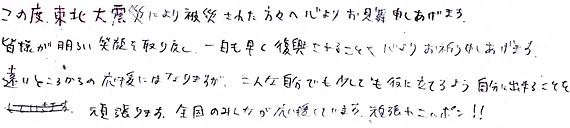 この度、東北大震災により被災された方々へ心よりお見舞申しあげます。
皆様が明るい笑顔を取り戻し、一日も早く復興されることを心よりお祈り申しあげます。
遠いところからの応援にはなりますが、こんな自分でも少しでも役に立てるよう自分に出来ることを
頑張ります。全国のみんなが応援しています。頑張れニッポン!!